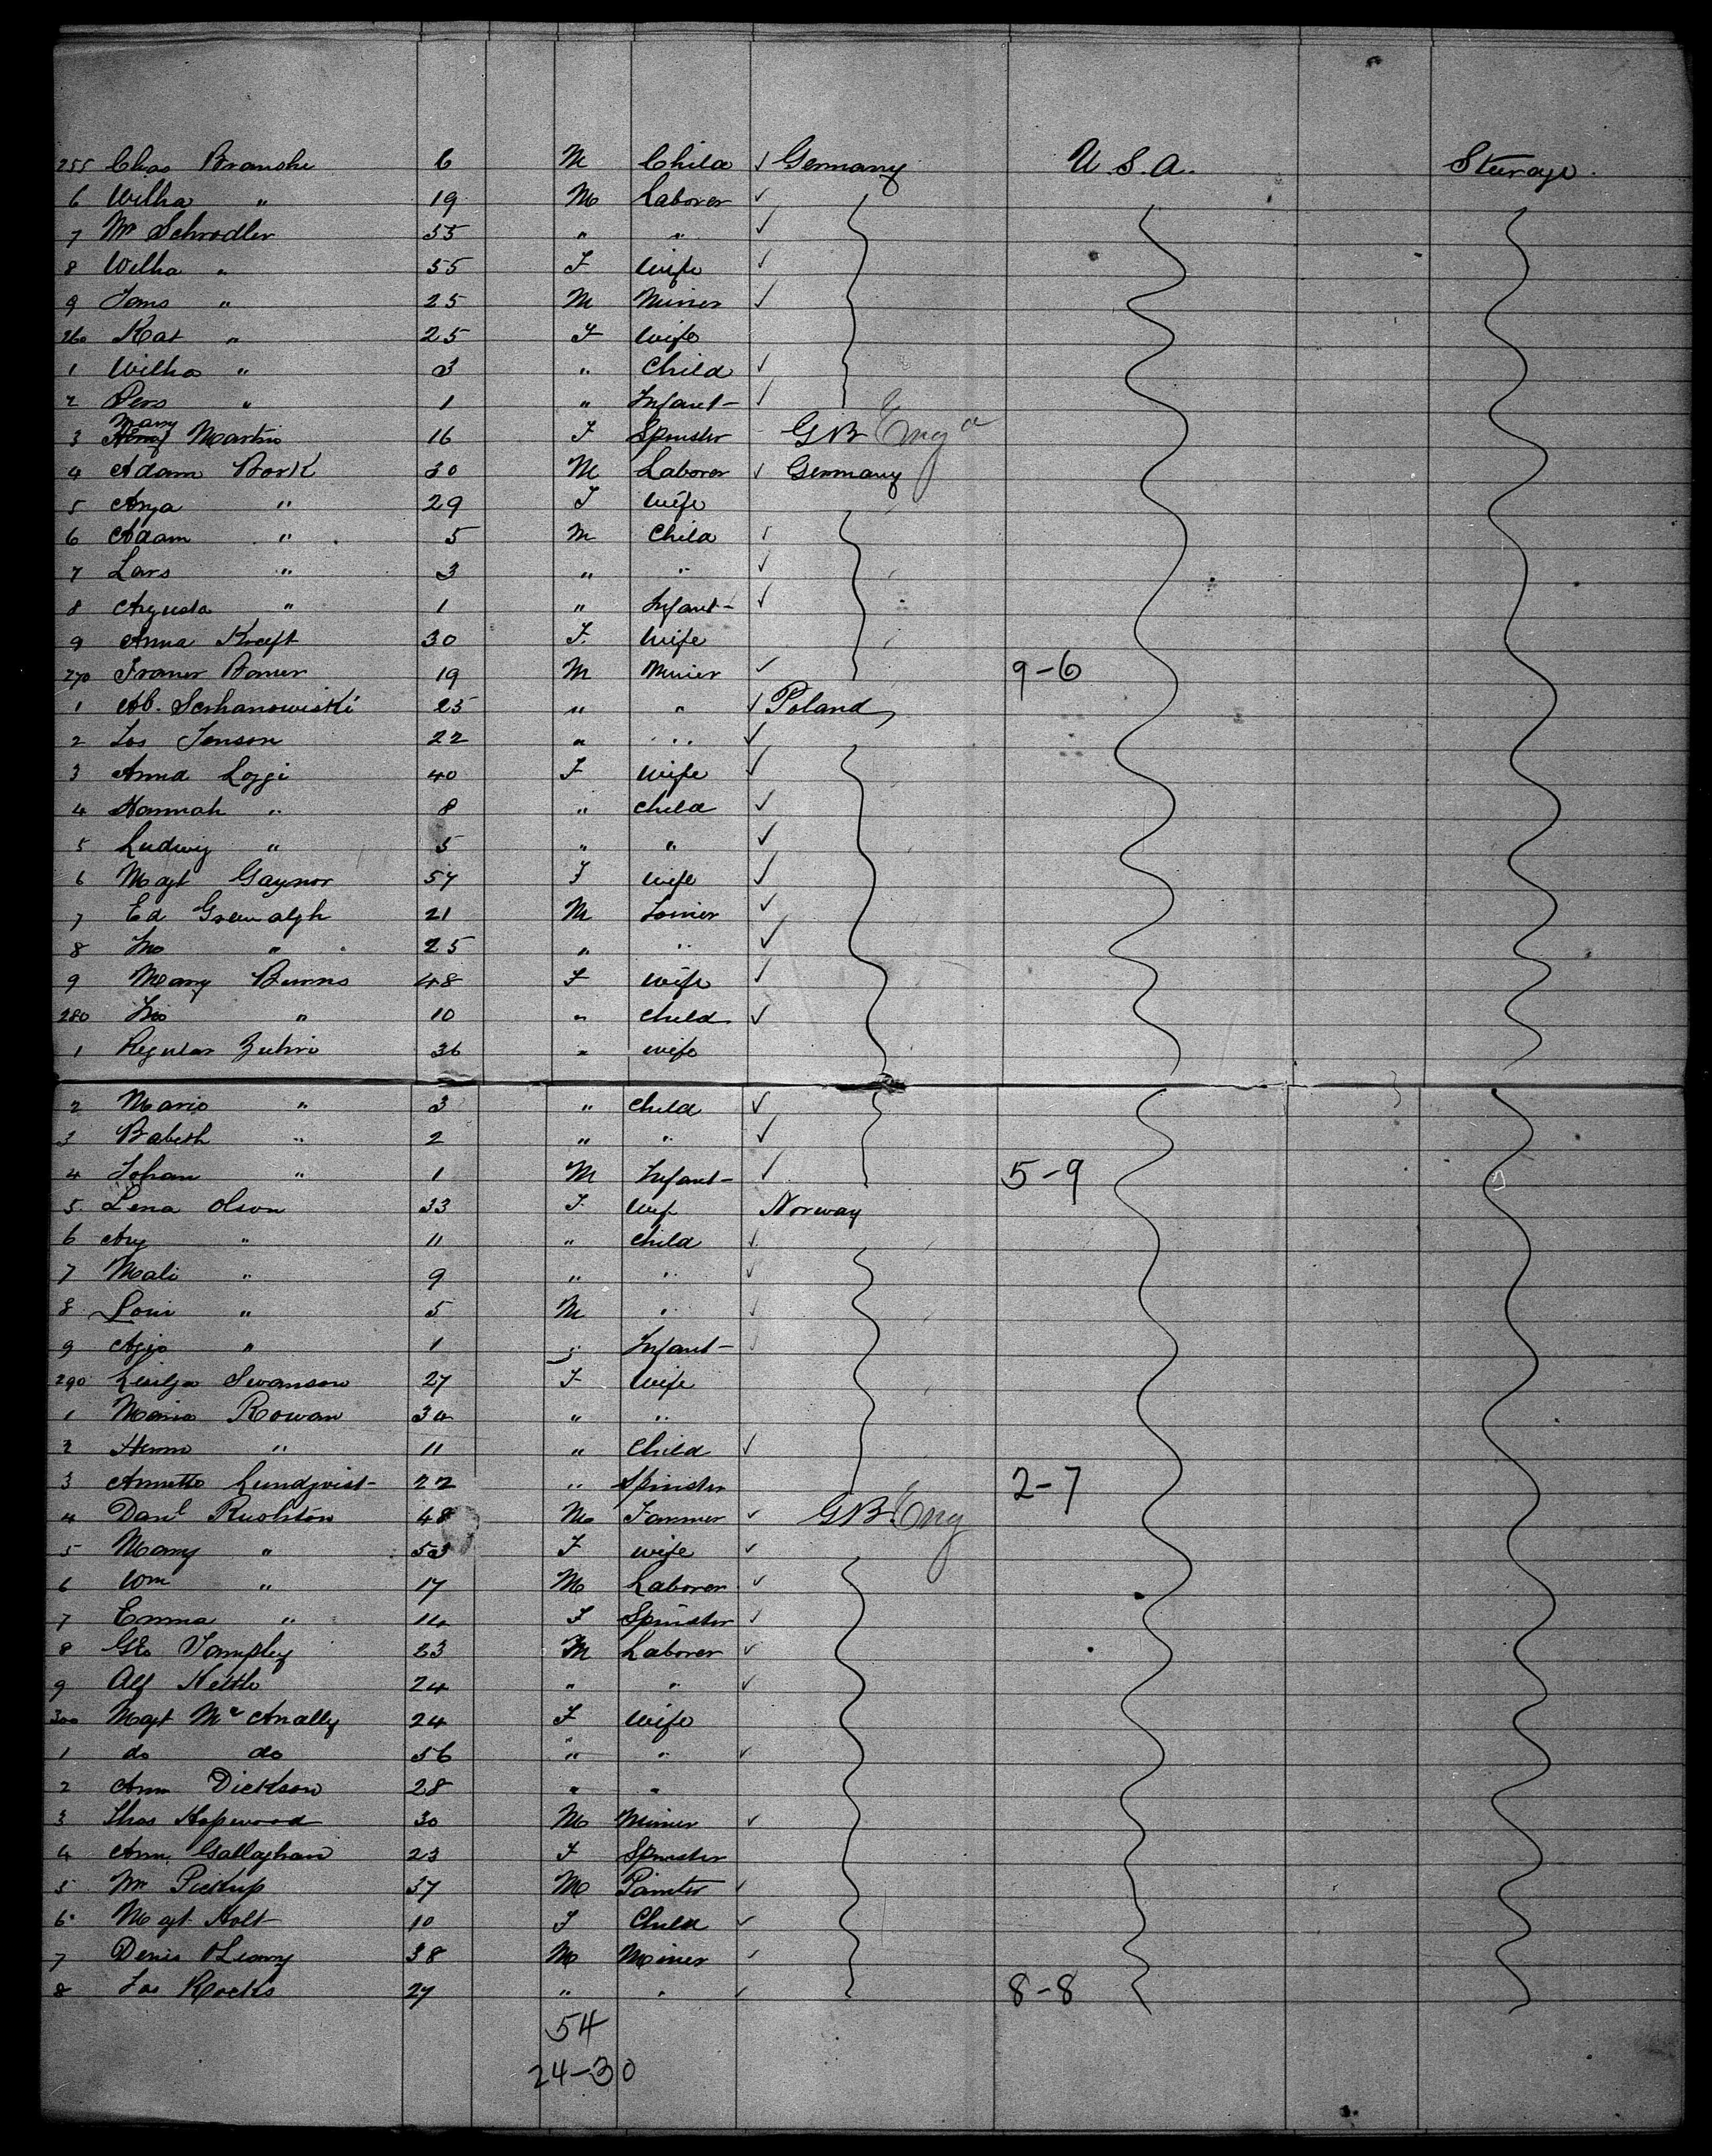 255 Chas Branske 6 M Child ✓ Germany U.S.A. Steerage.
6 Wilha " 19 M Laborer ✓
7 Wm Schrodler 55 " " ✓
8 Wilha " 55 F Wife ✓
9 Jans " 25 M Miner ✓
260 Kat " 25 F Wife
1 Wilha " 3 " Child ✓
2 Pers " 1 " Infant ✓
3 Mary Martin 16 F Spinster GB Eng
4 Adam Bork 30 M Laborer ✓ Germany
5 Anja " 29 F Wife
6 Adam " 5 M Child ✓
7 Lars " 3 " " ✓
8 Augusta " 1 " Infant ✓
9 Anna Kraft 30 F. Wife
270 Franer Bomer 19 M Miner ✓ 9-6
1 Ab. Serhanowiski 25 " " ✓ Poland
2 Jos Jonson 22 " " ✓
3 Anna Loggi 40 F Wife ✓
4 Hannah " 8 " Child ✓
5 Ludwig " 5 " " ✓
6 Magt Gaynor 57 F Wife ✓
7 Ed Greenalgh 21 M Joiner ✓
8 Jno " 25 " " ✓
9 Mary Burns 48 F Wife ✓
280 Jno " 10 " Child ✓
1 Regular Zuhri 36 " Wife
2 Marie " 3 " Child ✓
3 Babeth " 2 " " ✓
4 Johan " 1 M Infant ✓ 5-9
5. Lena Olson 33 F Wife Norway
6 Any " 11 " Child ✓
7 Mali " 9 " " ✓
8 Loui " 5 M " ✓
9 " 1 " Infant ✓
290 Swanson 27 F Wife
1 Maria Rowan 30 " "
2 " 11 " Child ✓
3 Annette Lundqvist 22 " Spinster 2-7
4 Danl Rushton 48 M Farmer ✓ GB Eng
5 Mary " 53 F Wife ✓
6 Wm " 17 M Laborer ✓
7 Emma " F Spinster ✓
8 Geo Tampley 23 M Laborer ✓
9 Alf Kettle 24 " " ✓
300 Magt McAnally 24 F Wife
1 do do 56 " " ✓
2 Ann Dickson 28 " "
3 Thos Hopwood 30 M Miner ✓
4 Ann Gallaghan 23 F Spinster
5 Wm Pickup 37 M Painter ✓
6 Magt Holt 10 F Child ✓
7 Denis OLeary 38 M Miner ✓
8 Jas Rocks 27 " " ✓ 8-8
54
24-30